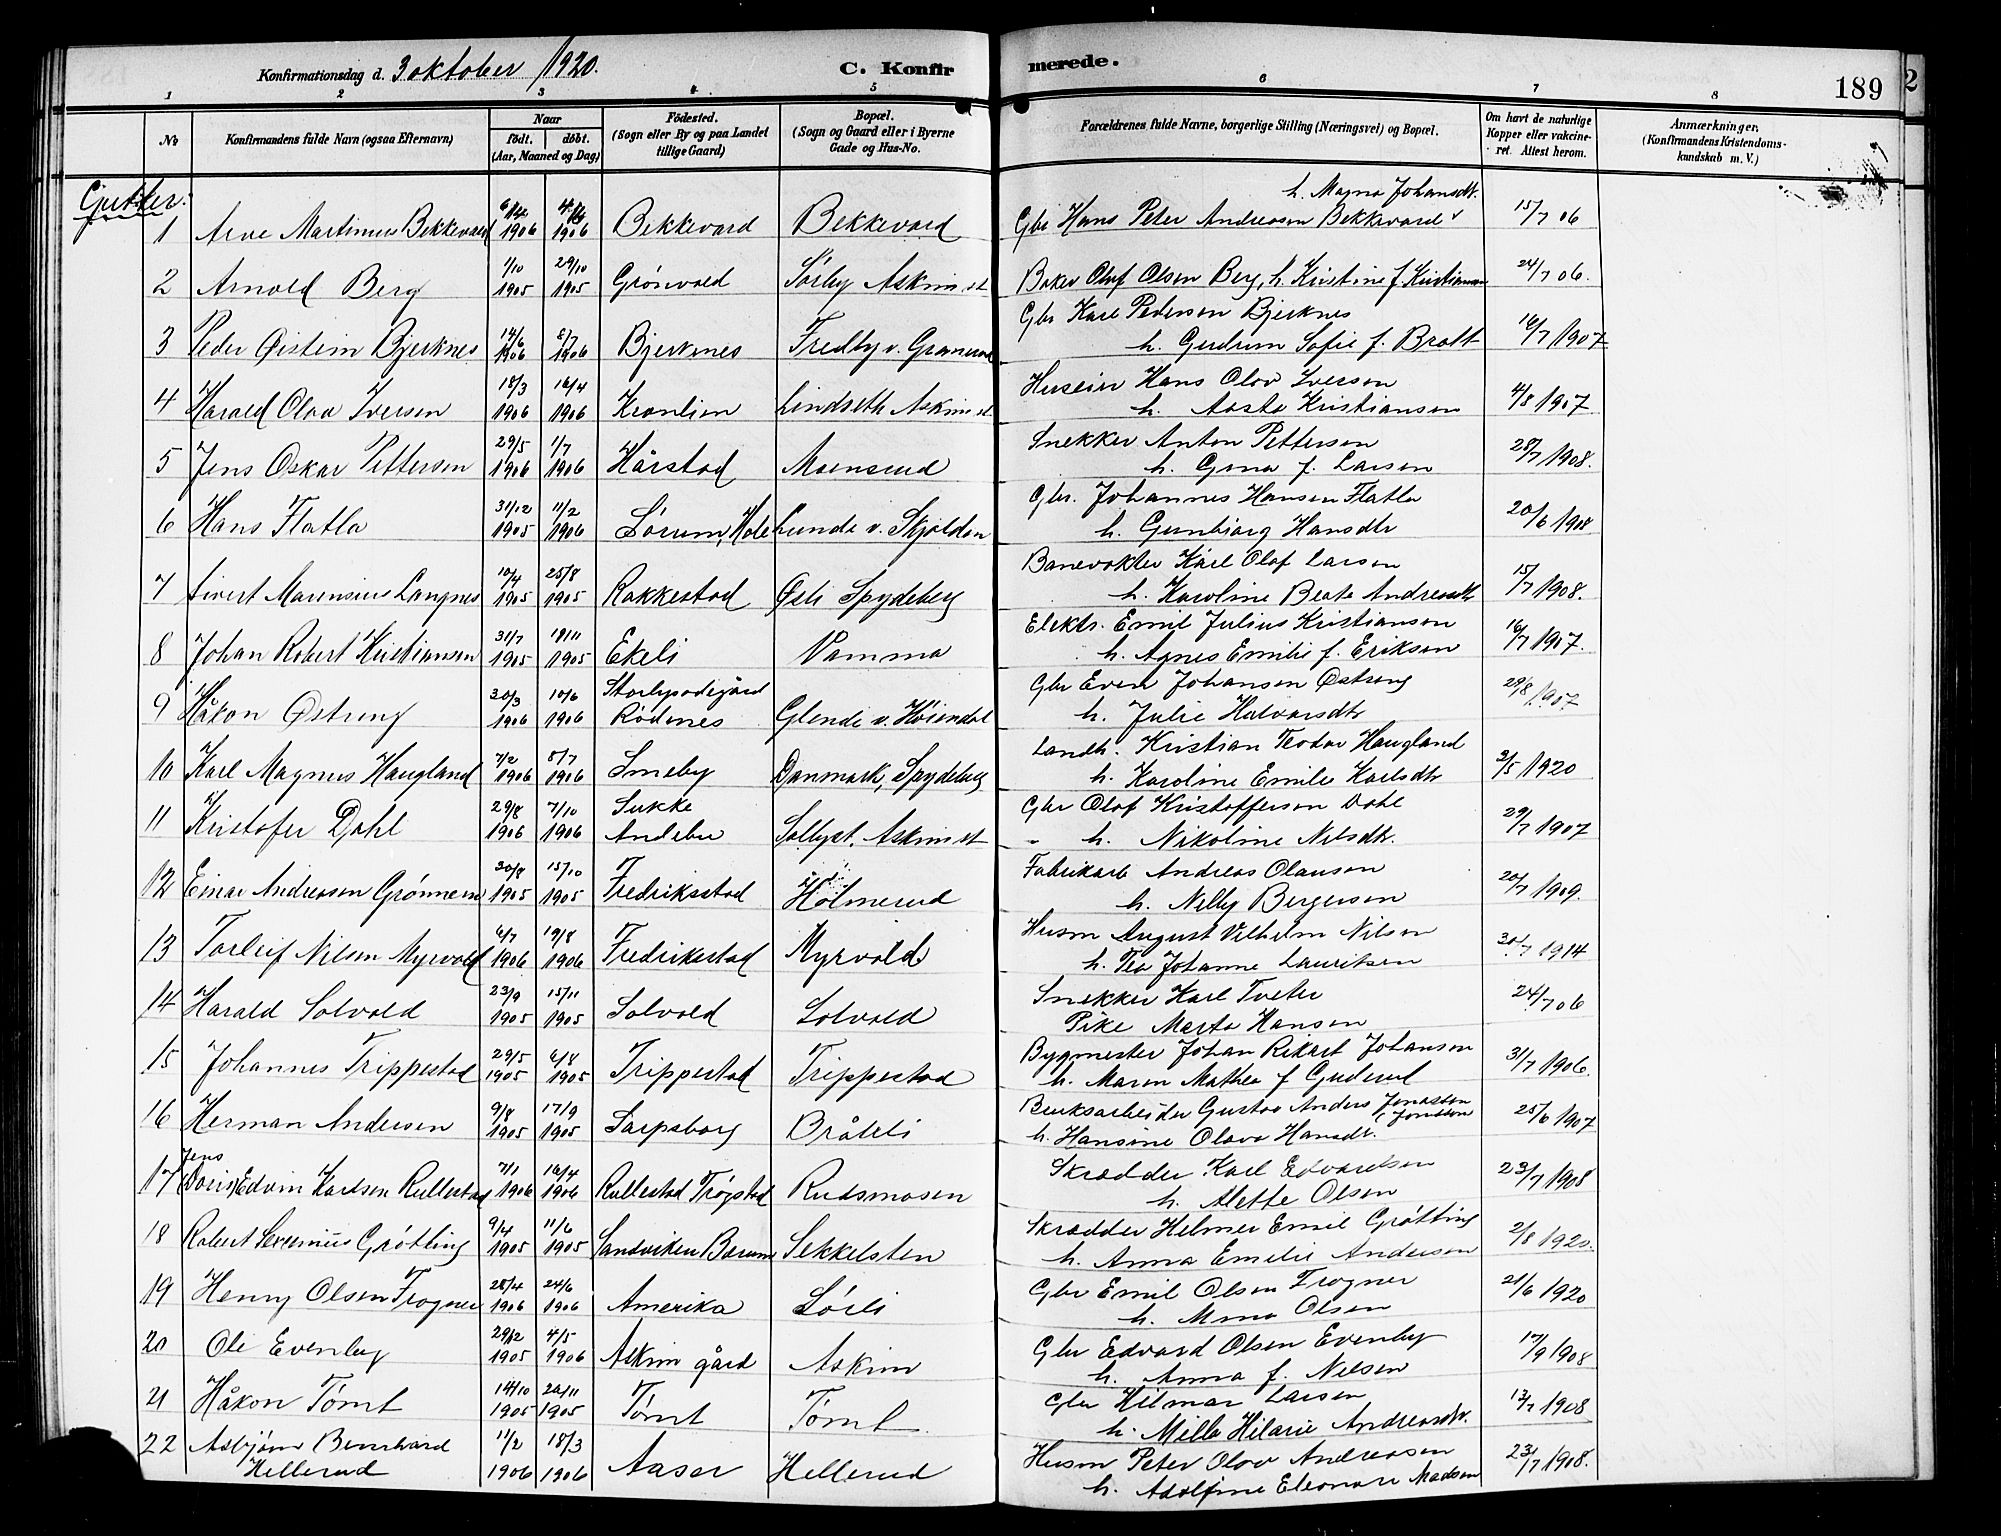 Konfirmationsdag d. 3 oktober 1920. C. Konfirmerede. 189
1 2 3 4 5 6 7 8
No
Konfirmandens fulde Navn (ogsaa Efternavn)
Naar
født. døbt.
(Aar, Maaned og Dag)
Fødested.
(Sogn eller By og paa Landet
tillige Gaard)
Bopæl.
(Sogn og Gaard eller i Byerne
Gade og Hus-No.
Forældrenes fulde Navne, borgerlige Stilling (Næringsvei) og Bopæl.
Om havt de naturlige
Kopper eller vakcine-
ret. Attest herom.
Anmærkninger.
(Konfirmandens Kristendoms-
kundskab m. V.)
Gutter:
h. Magna Johansdt.
1 Arne Martinius Bekkevard 1906 1906 Bekkevard Bekkevard Gbr Hans Peter Andreasen Bekkevard 15/7 06
1/10 29/10
2 Arnold Berg 1905 1905 Grönvold Sörby Askim st Baker Oluf Olsen Berg, h. Kristine f. Kristiansen 24/7 06.
14/6 8/7 Gbr Karl Pedersen Bjerknes
3 Peder Øistein Bjerknes 1906 1906 Bjerknes Fredly v. Granerud h. Gudrun Sofie f. Bratt 16/7 1907
18/3 16/4 Huseier Hans Olav Iversen
4 Harald Olav Iversen 1906 1906 Kronlien Lindseth Askim st h. Aasta Kristiansen 4/8 1907
29/5 1/7 Snekker Anton Pettersen
5 Jens Oskar Pettersen 1906 1906 Hårstad Moensrud h. Gina f. Larsen 28/7 1908.
31/12 11/2 Gbr. Johannes Hansen Flatla
6 Hans Flatla 1905 1906 Sörum, Hole Lunde v. Skjolden h. Gunbjørg Hansdtr 20/6 1908
10/4 25/8 Banevokter Karl Olaf Larsen
7 Sivert Marensius Langnes 1905 1905 Rakkestad Østi Spydeberg h. Karoline Beate Andreasdtr 15/7 1908.
31/7 19/11 Elektr. Emil Julius Kristiansen
8 Johan Robert Kristiansen 1905 1905 Ekeli Vamma h. Agnes Emilie f. Eriksen 16/7 1907.
20/3 10/6 Gbr Even Johansen Østreng
9 Håkon Østreng 1906 1906 Rödenes Glende v. Höiendal h. Julie Halvorsdtr 29/8 1907
7/2 8/7 Landh. Kristian Teodor Haugland
10 Karl Magnus Haugland 1906 1906 Smeby Danmark, Spydeberg h. Karoline Emilie Karlsdtr 3/5 1920
29/8 7/10 Sukke Gbr Olaf Kristoffersen Dahl
11 Kristofer Dahl 1906 1906 Andebu Solbyst. Askim st " h. Nikoline Nilsdtr. 29/7 1907
30/8 15/10 Fabrikarb Andreas Olausen
12 Einar Andreasen Grönnern 1905 1905 Fredriksstad Holmerud h. Nelly Bergersen 20/7 1909.
6/7 19/8 Husm August Vilhelm Nilsen
13 Torleif Nilsen Myrvold 1906 1906 Fredrikstad Myrvold h. Tea Johanne Lauritsen 30/7 1914
23/9 15/11 Snekker Karl Tveter
14 Harald Solvold 1905 1905 Solvold Solvold Pike Marta Hansen 24/7 06
29/5 6/8 Bygmester Johan Rikart Johansen
15 Johannes Trippestad 1905 1905 Trippestad Trippestad h. Maren Mathea f Guderud 31/7 1906.
9/8 17/9 Bruksarbeider Gustav Anders Jonassen
16 Herman Andersen 1905 1905 Sarpsborg Bråteli h. Hansine Olava Hansdtr. 25/6 1907
Jens 7/1 16/4 Skrædder Karl Edvardsen
17 (Doris) Edvin Karlsen Rullestad 1906 1906 Rullestad Trögstad Rudsmosen h. Alette Olsen 23/7 1908
9/4 11/6 Skrædder Helmer Emil Gröttting
18 Robert Severinius Grötting 1905 1905 Sandviken Bærum Sekkelsten h. Anna Emelie Andersen 2/8 1920.
28/4 24/6 Gbr Emil Olsen Trogner
19 Henry Olsen Trogner 1906 1906 Amerika Sörli h. Olsen 21/6 1920
29/12 4/5 Gbr Edvard Olsen Evenby
20 Ole Evenby 1905 1906 Askim gård Askim h. Anna f. Nelsen 17/9 1908
14/10 20/11 Gbr Hilmar Larsen
21 Håkon Tömt 1905 1905 Tömt Tömt h. Milla Hilarie Andreasdtr. 13/7 1908
22 Asbjörn Bernhard 11/2 18/3 Husm Peter Olav Andreasen
Hellerud 1906 1906 Aaser Hellerud h. Adolfine Eleonore Madsen 23/7 1908.